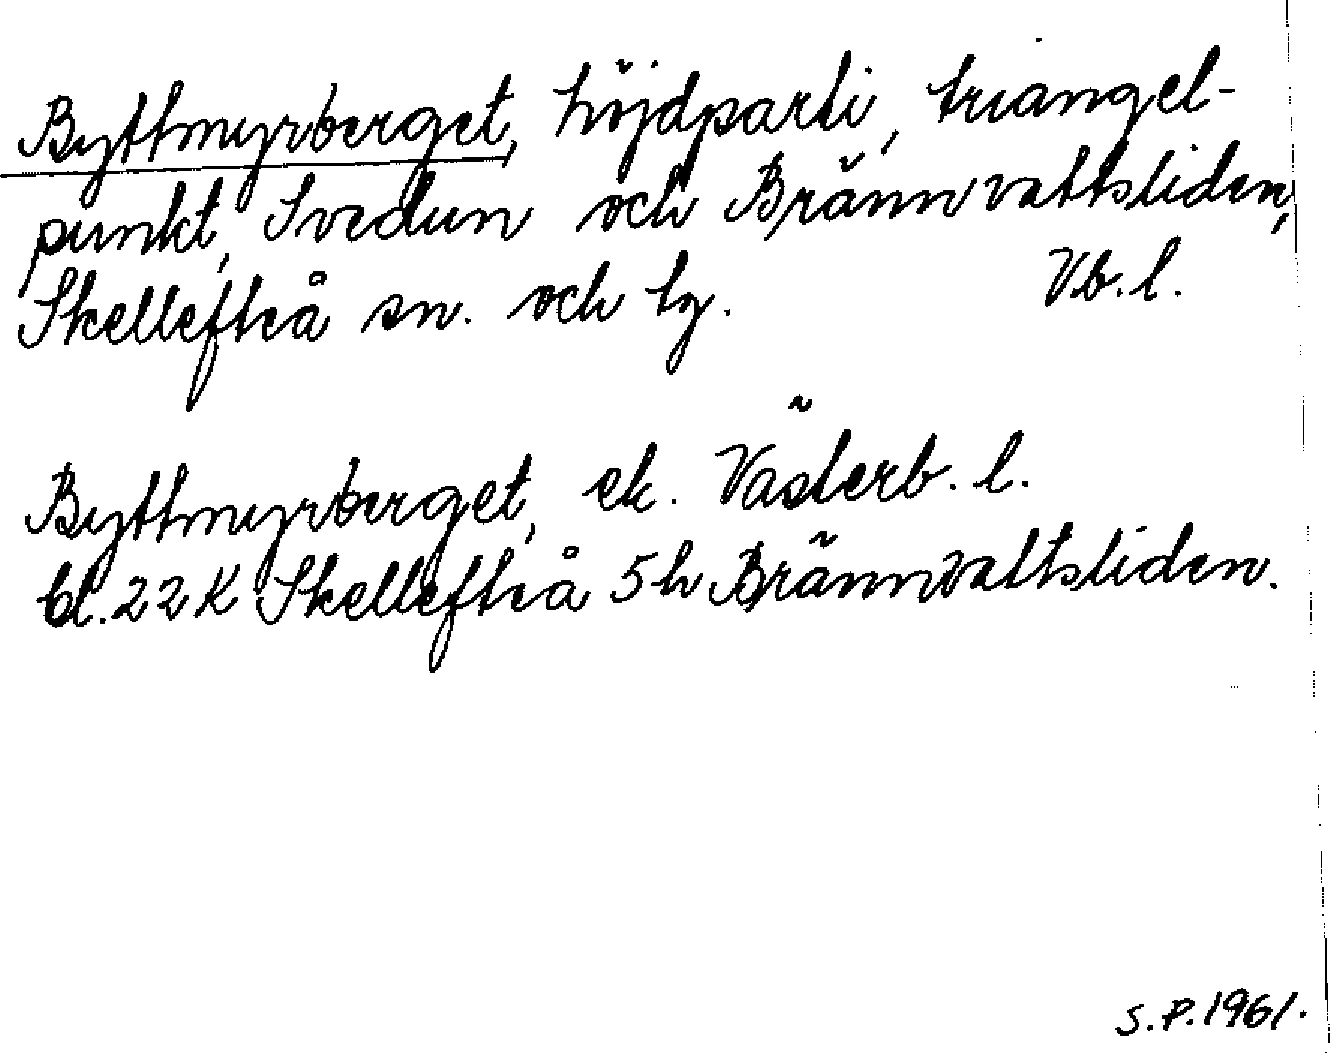 Byttmyrberget, höjdparti, triangel-
punkt, Svedun och Brännvattsliden,
Skellefteå sn. och tg. Vb. l.
Byttmyrberget, ek. Västerb. l.
bl. 22 K Skellefteå 5h Brännvattsliden.
S.P. 1961.